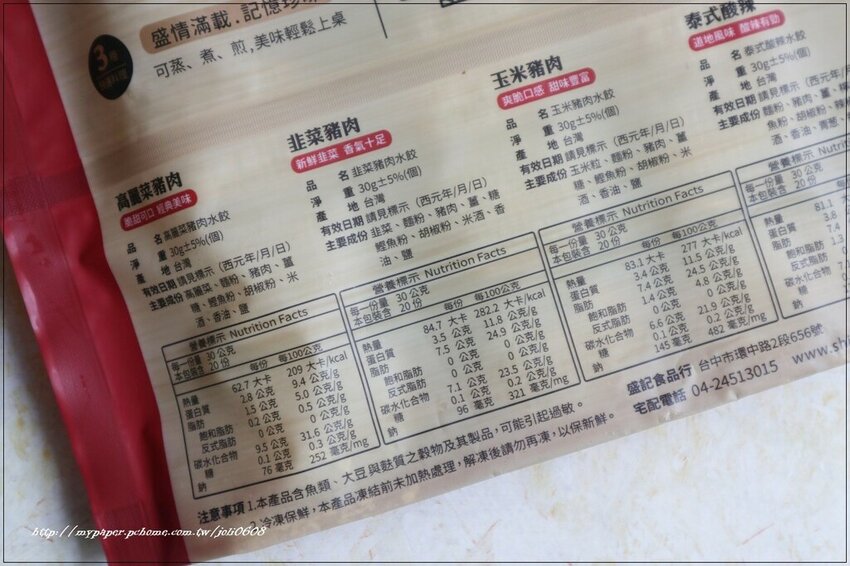 盛情滿載.記憶珍
可蒸、煮、煎,美味輕鬆上桌
3種
高麗菜豬肉
脆甜可口 經典美味
品 名 高麗菜豬肉水餃
淨 重 30g±5%(個)
產 地 台灣
有效日期 請見標示 (西元年/月/日)
主要成份 高麗菜、麵粉、豬肉、薑、
糖、鰹魚粉、胡椒粉、米
酒、香油、鹽
營養標示 Nutrition Facts
每一份量 30 公克
本包裝含 20 份
每份 每100公克
熱量 62.7 大卡 209 大卡/kcal
蛋白質 2.8 公克 9.4 公克/g
脂肪 1.5 公克 5.0 公克/g
飽和脂肪 0.2 公克 0.5 公克/g
反式脂肪 0 公克 0 公克/g
碳水化合物 9.5 公克 31.6 公克/g
糖 0.1 公克 0.3 公克/g
鈉 76 毫克 252 毫克/mg
韭菜豬肉
新鮮韭菜 香氣十足
品 名 韭菜豬肉水餃
淨 重 30g±5%(個)
產 地 台灣
有效日期 請見標示 (西元年/月/日)
主要成份 韭菜、麵粉、豬肉、薑、糖
鰹魚粉、胡椒粉、米酒、香
油、鹽
營養標示 Nutrition Facts
每一份量 30 公克
本包裝含 20 份
每份 每100公克
熱量 84.7 大卡 282.2 大卡/kcal
蛋白質 3.5 公克 11.8 公克/g
脂肪 7.5 公克 24.9 公克/g
飽和脂肪 0 公克 0 公克/g
反式脂肪 0 公克 0 公克/g
碳水化合物 7.1 公克 23.5 公克/g
糖 0.1 公克 0.2 公克/g
鈉 96 毫克 321 毫克/mg
玉米豬肉
爽脆口感 甜味豐富
品 名 玉米豬肉水餃
淨 重 30g±5%(個)
產 地 台灣
有效日期 請見標示 (西元年/月/日)
主要成份 玉米粒、麵粉、豬肉、薑
糖、鰹魚粉、胡椒粉、米
酒、香油、鹽
營養標示 Nutrition Facts
每一份量 30 公克
本包裝含 20 份
每份 每100公克
熱量 83.1 大卡 277 大卡/kcal
蛋白質 3.4 公克 11.5 公克/g
脂肪 7.4 公克 24.5 公克/g
飽和脂肪 1.4 公克 4.8 公克/g
反式脂肪 0 公克 0 公克/g
碳水化合物 6.6 公克 21.9 公克/g
糖 0.1 公克 0.2 公克/g
鈉 145 毫克 482 毫克/mg
泰式酸辣
道地風味 酸辣有勁
品 名 泰式酸辣水餃
淨 重 30g±5%(個)
產 地 台灣
有效日期 請見標示 (西元年/月/日)
主要成份 麵粉、豬肉、薑、
魚粉、胡椒粉、
酒、香油、青蔥、
營養標示 Nutrition
每一份量 30 公克
本包裝含 20 份
熱量 81.1
蛋白質 3.8
脂肪 7.4
飽和脂肪
反式脂肪
碳水化合物
糖
鈉
盛記食品行 台中市環中路2段656號
宅配電話 04-24513015 www.shi
注意事項 1.本產品含魚類、大豆與麩質之穀物及其製品,可能引起過敏。
2.冷凍保鮮,本產品凍結前未加熱處理,解凍後請勿再凍,以保新鮮。
http://mypaper.pchome.com.tw/joli0608